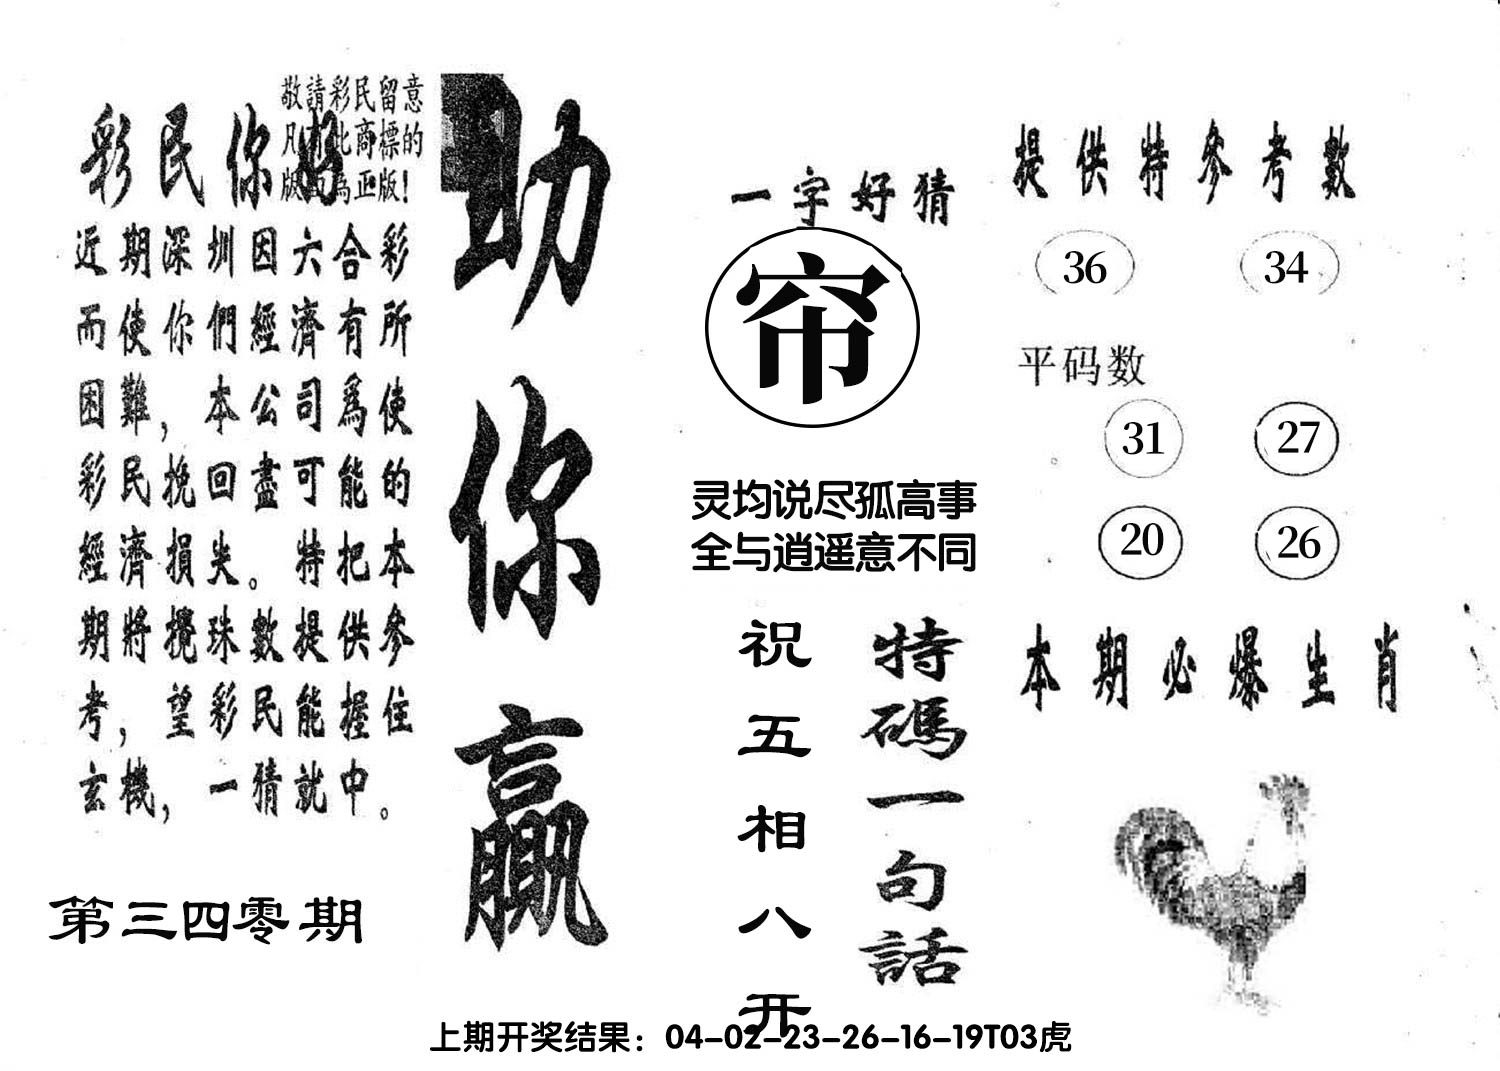 敬請彩民留意
凡有此商標的
版面為正版!
彩民你好
近期深圳因六合彩
而使你們經濟有所
困難，本公司爲使
彩民挽回盡可能的
經濟損失。特把本
期將攪珠數提供參
考，望彩民能握住
玄機，一猜就中。
第三四零期
助你贏
一字好猜
帘
灵均说尽孤高事
全与逍遥意不同
特碼一句話
祝五相八开
提供特參考數
36 34
平码数
31 27
20 26
本期必爆生肖
上期开奖结果：04-02-23-26-16-19T03虎